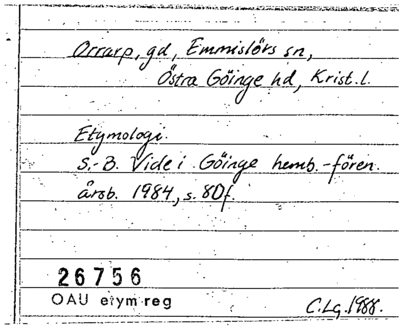 Orrarp, gd, Emmislövs sn,
Östra Göinge hd, Krist. l.
Etymologi
S.-B. Vide i Göinge hemb.-fören.
årsb. 1984, s. 80f.
26756
OAU etym reg
C.Lg. 1988.